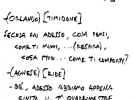 -{ORLANDO} [TIMIDONE]
SECOSA FAI ADESSO, COSA PENSI,
COME TI MUOVI, ...(RESPIRA),
COSA STAI... COME TI COMPORTI?
-{AGNESE} [RIDE]
- BÈ, ADESSO ABBIAMO APPENA
FINITO IL 1° QUADRIMESTRE